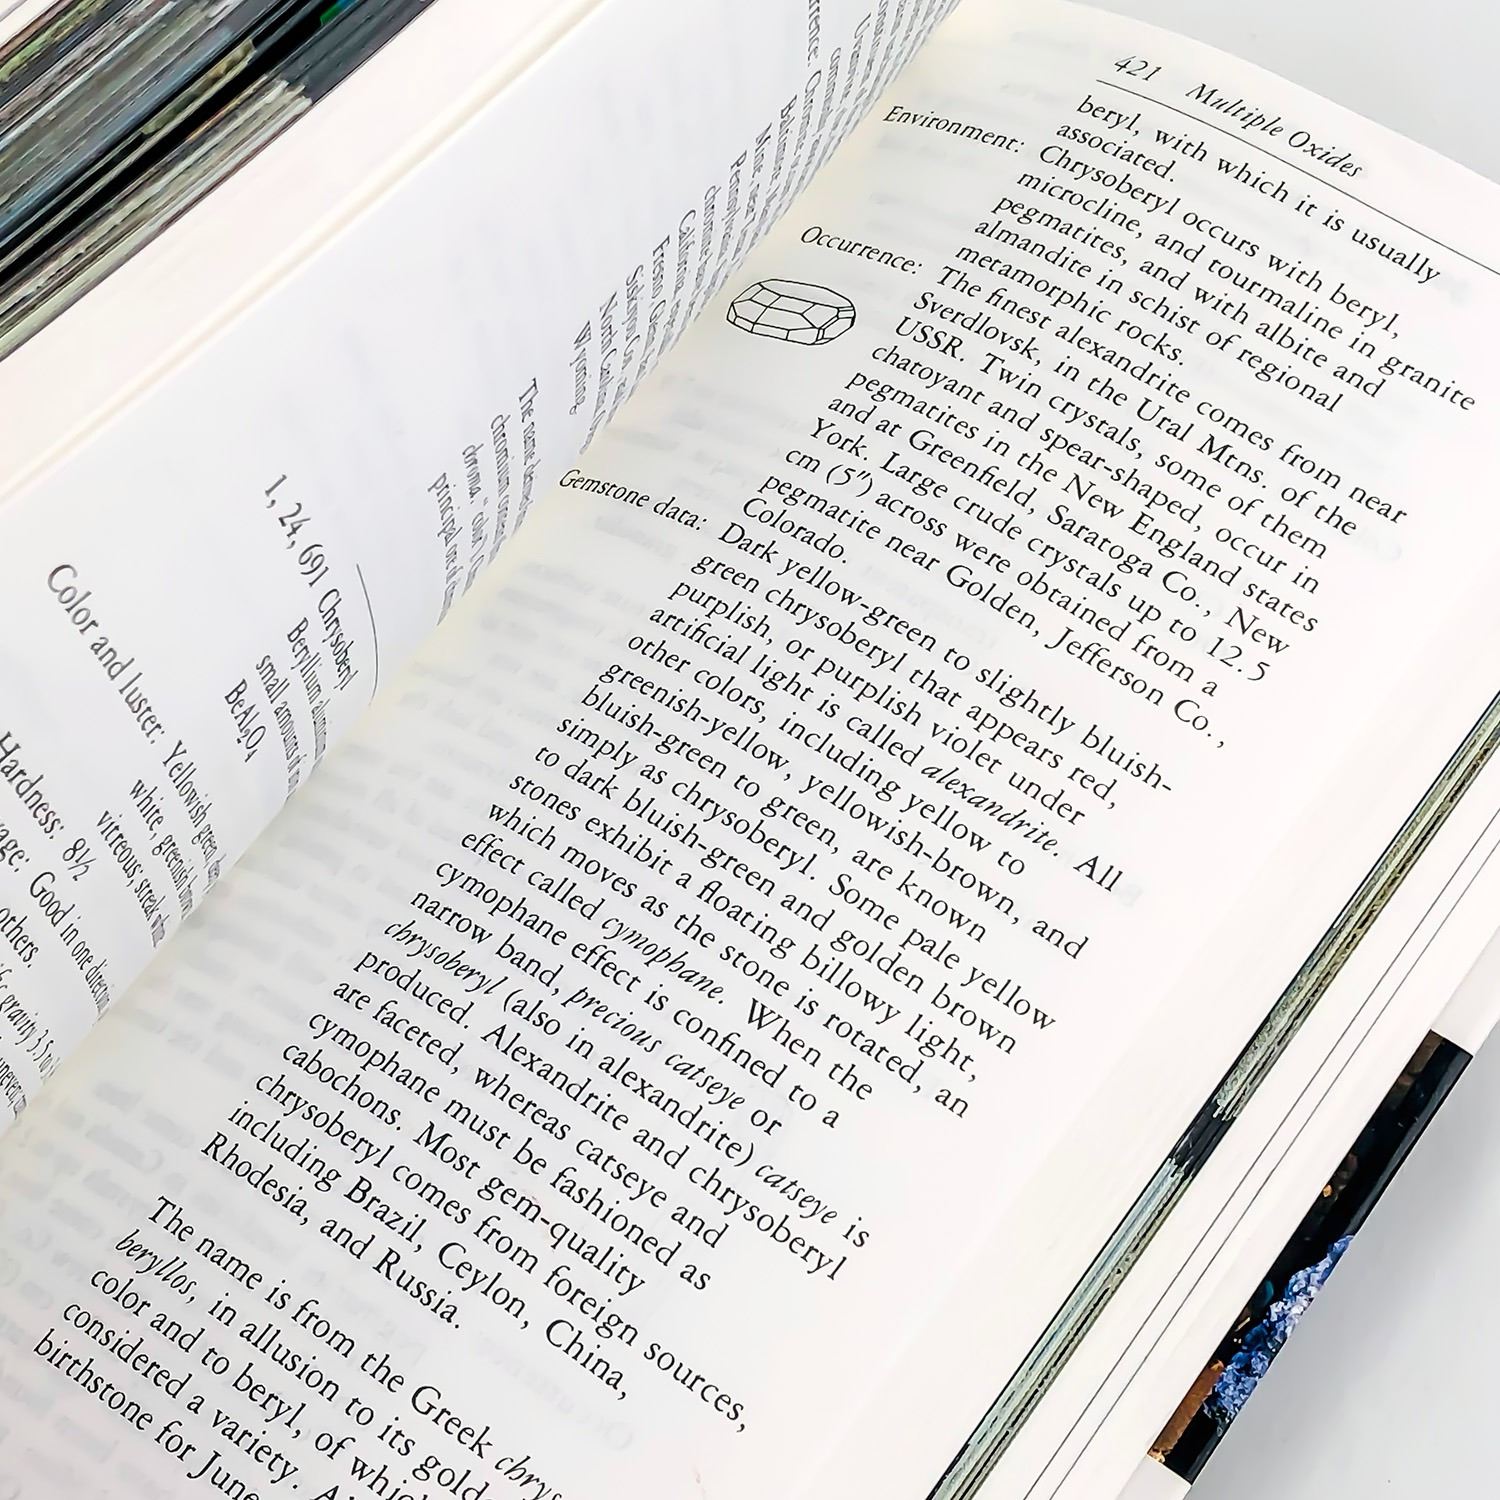 Wyoming.
The name
chromium
chroma, "color,"
principal
1, 24, 691 Chrysoberyl
Beryllium aluminum
small amounts of
BeAl₂O₄
Color and luster: Yellowish green
white, greenish
vitreous; streak
Hardness: 8½
Good in one direction
others.
gravity 3.5 to
421 Multiple Oxides
beryl, with which it is usually
associated.
Environment: Chrysoberyl occurs with beryl,
microcline, and tourmaline in granite
pegmatites, and with albite and
almandite in schist of regional
metamorphic rocks.
Occurrence: The finest alexandrite comes from near
Sverdlovsk, in the Ural Mtns. of the
USSR. Twin crystals, some of them
chatoyant and spear-shaped, occur in
pegmatites in the New England states
and at Greenfield, Saratoga Co., New
York. Large crude crystals up to 12.5
cm (5") across were obtained from a
pegmatite near Golden, Jefferson Co.,
Colorado.
Gemstone data: Dark yellow-green to slightly bluish-
green chrysoberyl that appears red,
purplish, or purplish violet under
artificial light is called alexandrite. All
other colors, including yellow to
greenish-yellow, yellowish-brown, and
bluish-green to green, are known
simply as chrysoberyl. Some pale yellow
to dark bluish-green and golden brown
stones exhibit a floating billowy light,
which moves as the stone is rotated, an
effect called cymophane. When the
cymophane effect is confined to a
narrow band, precious catseye or
chrysoberyl (also in alexandrite) catseye is
produced. Alexandrite and chrysoberyl
are faceted, whereas catseye and
cymophane must be fashioned as
cabochons. Most gem-quality
chrysoberyl comes from foreign sources,
including Brazil, Ceylon, China,
Rhodesia, and Russia.
The name is from the Greek chrys
beryllos, in allusion to its golde
color and to beryl, of which
considered a variety.
birthstone for June